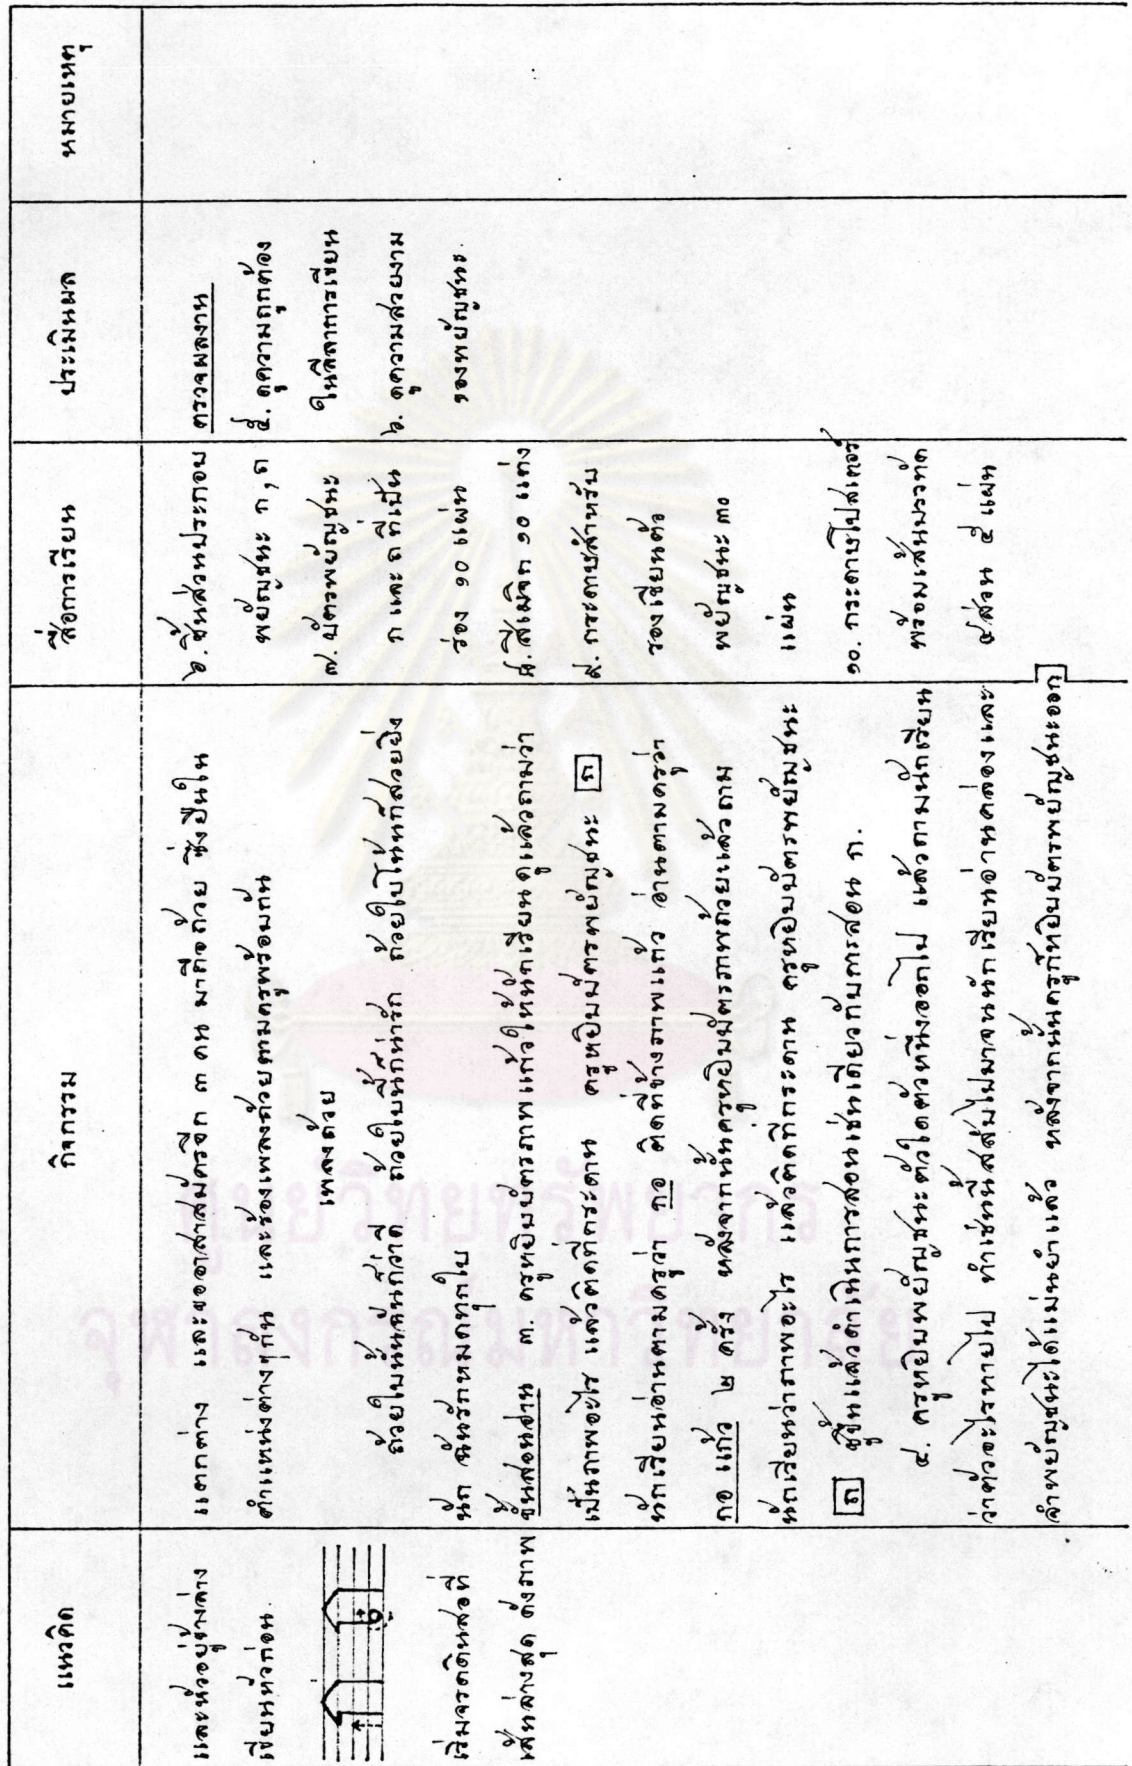 แนวคิด
และหัวอยู่ข้างล่าง
เขียนหัวก่อน
เริ่มจรดดินสอที่
เส้นล่างสุด ดังภาพ
กิจกรรม
แตกต่าง และขออาสาสมัครอีก ๓ คน มาถือถ้วย ซึ่งยืนใน
ตำแหน่งต่างๆกัน และร้องเพลงถ้วยตามครูพร้อมกัน
เพลงถ้วย
ถ้วยใบนั้นฉันก็ว่าดี ถ้วยใบนี้ก็น่ารัก ถ้วยใบโน้นก็สวยยิ่ง
นัก ฉันรักหมดทุกใบ
ขั้นสอนอ่าน ๓. ครูหยิบบัตรภาพแก้วให้นักเรียนดูแล้วถามว่า
เป็นภาพอะไร แล้วติดที่กระดาน ครูหยิบบัตรพยัญชนะ ก
นักเรียนอ่านตามครูว่า กอ ติดที่ข้างภาพแก้ว อ่านตามครูว่า
กอ แก้ว ๒ ครั้ง หลังจากนั้นครูหยิบบัตรภาพถ้วยแล้วถาม
นักเรียนว่าภาพอะไร แล้วติดที่กระดาน ครูหยิบบัตรพยัญชนะ
ถ ชูขึ้นแล้วดำเนินการสอนเช่นเดียวกับการสอน ก.
๔. ครูหยิบพยัญชนะตัวใดตัวหนึ่งออกไป แล้วถามนักเรียน
ว่าตัวอะไรหายไป ทำเช่นนี้สลับไปมาจนนักเรียนอ่านคล่องและ
จำพยัญชนะได้แม่นยำแล้ว หลังจากนั้นครูก็หยิบบัตรพยัญชนะออก
สื่อการเรียน
๖. ชิ้นส่วนประกอบ
พยัญชนะ ก, ถ
๗. บัตรพยัญชนะ
ก และ ถ ที่เป็น
ร่อง ๑๐ แผ่น
๘. สีเมจิก ๑๐ แท่ง
๙. กระดาษสำหรับ
รองเขียนตัว
พยัญชนะ ๓๐
แผ่น
๑๐. กระดาษโปสเตอร์
พร้อมเส้นบรรทัด
๔ ส่วน ๕ แผ่น
ประเมินผล
ตรวจผลงาน
๕. ดูความถูกต้อง
ในลีลาการเขียน
๖. ดูความสวยงาม
ของพยัญชนะ.
หมายเหตุ
ศูนย์วิทยทรัพยากร
จุฬาลงกรณ์มหาวิทยาลัย